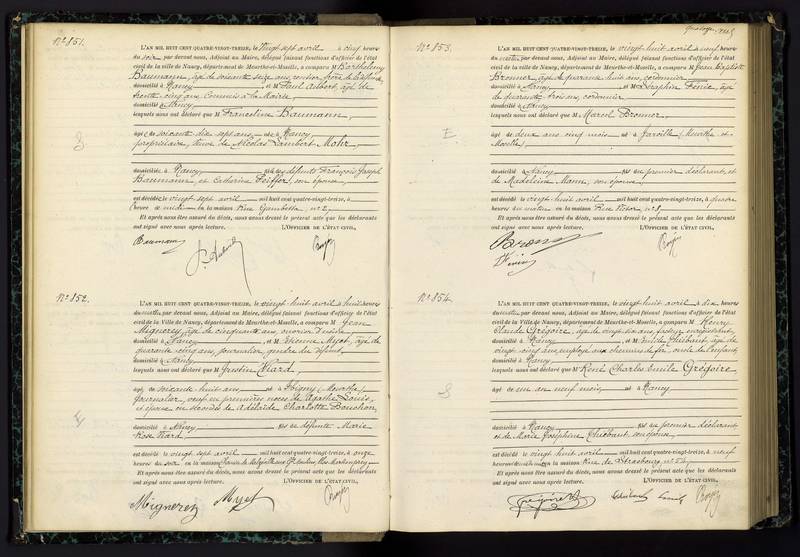 Nº 851.
L'AN MIL HUIT CENT QUATRE-VINGT-TREIZE, le vingt sept avril à cinq heures
du soir par devant nous, Adjoint au Maire, délégué faisant fonctions d'officier de l'état
civil de la ville de Nancy, département de Meurthe-et-Moselle, a comparu M Barthélemy
Baumann, âgé de soixante seize ans, rentier, frère de la défunte,
domicilié à Nancy et M Paul Aubert, âgé de
trente cinq ans, Commis à la Mairie,
domicilié à Nancy
lesquels nous ont déclaré que M Francoline Baumann,
âgée de soixante dix sept ans, née à Nancy,
propriétaire, Veuve de Nicolas Lambert Mohr,
domiciliée à Nancy fille des défunts François Joseph
Baumann, et Catherine Peiffer, son épouse,
est décédée le vingt sept avril mil huit cent quatre-vingt-treize, à
heure de midi en la maison Rue Gambetta, nº 2,
Et après nous être assuré du décès, nous avons dressé le présent acte que les déclarants
ont signé avec nous après lecture. L'OFFICIER DE L'ÉTAT CIVIL,
Baumann
P. Aubert
Nº 852.
L'AN MIL HUIT CENT QUATRE-VINGT-TREIZE, le vingt huit avril à huit heures
du matin par devant nous, Adjoint au Maire, délégué faisant fonctions d'officier de l'état
civil de la Ville de Nancy, département de Meurthe-et-Moselle, a comparu M Jean
Migneret, âgé de cinquante ans, ouvrier d'usine,
domicilié à Nancy et M Etienne Myet, âgé de
quarante cinq ans, journalier, gendre du défunt,
domicilié à Nancy
lesquels nous ont déclaré que M Justin Viard,
âgé de soixante huit ans né à (Meurthe),
journalier, veuf en premières noces de Agathe Louis,
et époux en secondes de Adélaïde Charlotte Bouchon,
domicilié à Nancy fils de défunte Marie
Rose Viard,
est décédé le vingt sept avril mil huit cent quatre-vingt-treize, à onze
heures du soir en la maison
Et après nous être assuré du décès, nous avons dressé le présent acte que les déclarants
ont signé avec nous après lecture. L'OFFICIER DE L'ÉTAT CIVIL,
Migneret Myet
Nº 853.
L'AN MIL HUIT CENT QUATRE-VINGT-TREIZE, le vingt huit avril à neuf heures
du matin, par devant nous, Adjoint au Maire, délégué faisant fonctions d'officier de l'état
civil de la ville de Nancy, département de Meurthe-et-Moselle, a comparu M Jean Baptiste
Bronner, âgé de quarante huit ans, cordonnier
domicilié à Nancy et M Séraphin âgé
de quarante trois ans, cordonnier
domicilié à Nancy
lesquels nous ont déclaré que M Marcel Bronner,
E.
âgé de deux ans cinq mois né à Jarville (Meurthe et
Moselle)
domicilié à Nancy fils du premier déclarant, et
de Madeleine Mann, son épouse,
est décédé le vingt huit avril mil huit cent quatre-vingt-treize, à quatre
heures du matin en la maison Rue
Et après nous être assuré du décès, nous avons dressé le présent acte que les déclarants
ont signé avec nous après lecture. L'OFFICIER DE L'ÉTAT CIVIL,
Nº 854.
L'AN MIL HUIT CENT QUATRE-VINGT-TREIZE, le vingt huit avril à dix heures
du matin, par devant nous, Adjoint au Maire, délégué faisant fonctions d'officier de l'état
civil de la Ville de Nancy, département de Meurthe-et-Moselle, a comparu M Henry
Claude Grégoire, âgé de vingt six ans, facteur
domicilié à Nancy et M Emile Thiébaut, âgé de
vingt cinq ans, employé aux chemins de fer, oncle de l'enfant,
domicilié à Nancy
lesquels nous ont déclaré que M René Charles Emile Grégoire,
âgé de un an neuf mois, né à Nancy
domicilié à Nancy fils du premier déclarant
et de Marie Joséphine Thiébaut son épouse,
est décédé le vingt huit avril mil huit cent quatre-vingt-treize, à neuf
heures du matin en la maison Rue de Strasbourg, nº 54,
Et après nous être assuré du décès, nous avons dressé le présent acte que les déclarants
ont signé avec nous après lecture. L'OFFICIER DE L'ÉTAT CIVIL,
Grégoire